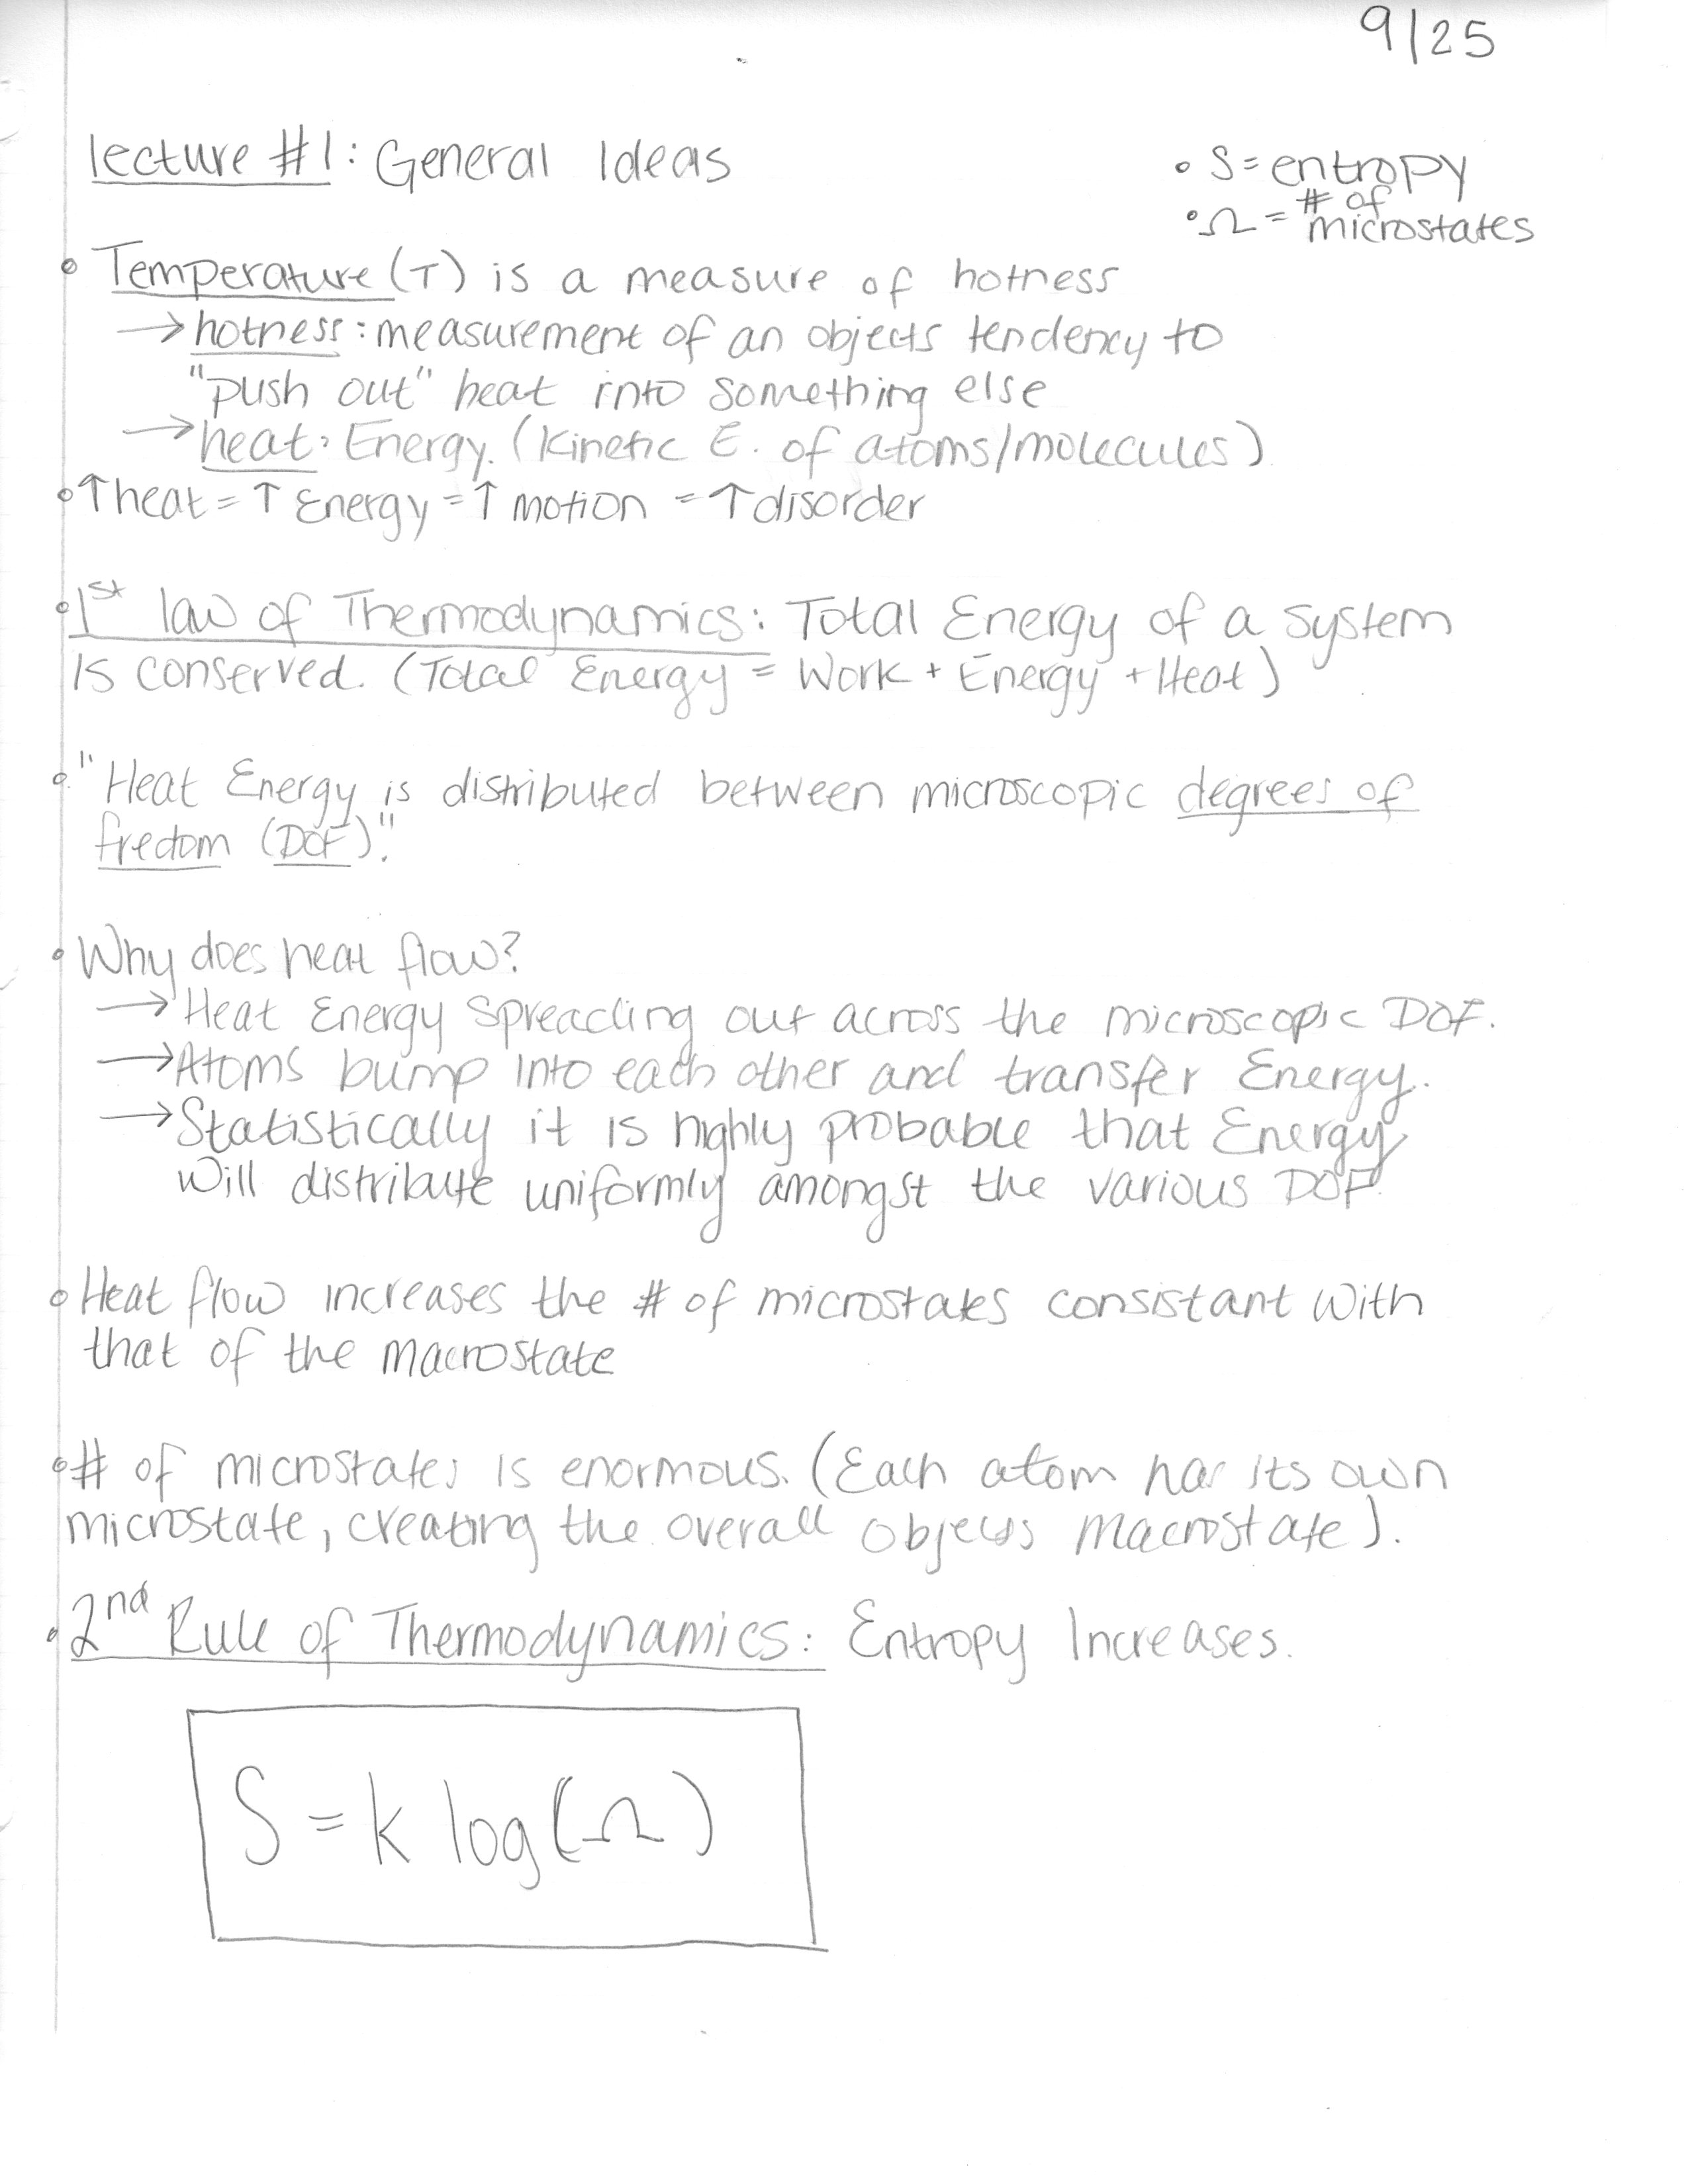 9/25
lecture #1: General Ideas
• S = entropy
• Ω = # of microstates
• Temperature (T) is a measure of hotness
→ hotness: measurement of an objects tendency to
"push out" heat into something else
→ heat: Energy. (Kinetic E. of atoms/molecules)
• ↑heat = ↑ Energy = ↑ motion = ↑ disorder
• 1st law of Thermodynamics: Total Energy of a system
is conserved. (Total Energy = Work + Energy + Heat)
• "Heat Energy is distributed between microscopic degrees of
fredom (DOF)."
• Why does heat flow?
→ Heat Energy spreading out across the microscopic DOF.
→ Atoms bump into each other and transfer Energy.
→ Statistically it is highly probable that Energy
will distribute uniformly amongst the various DOF
• Heat flow increases the # of microstates consistant with
that of the macrostate
• # of microstates is enormous. (Each atom has its own
microstate, creating the overall objects macrostate).
• 2nd Rule of Thermodynamics: Entropy Increases.
S = k log(Ω)